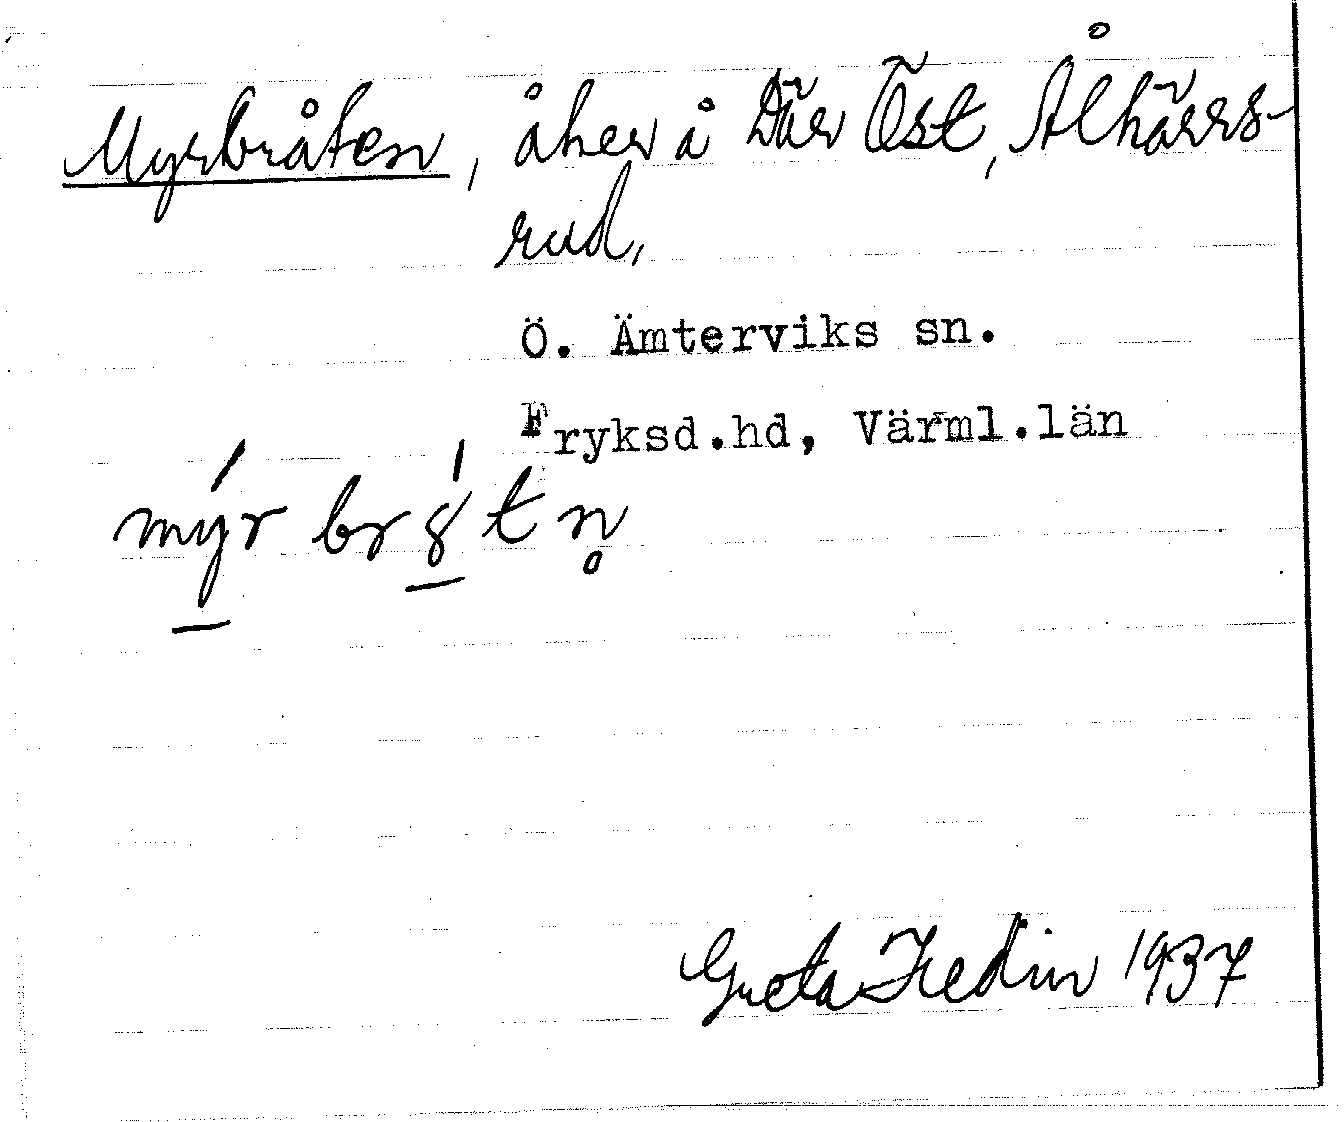 Myrbråten, åker å Där Öst, Ålkärrs-
rud,
Ö. Ämterviks sn.
Fryksd.hd, Värml.län
Greta Hedin 1937